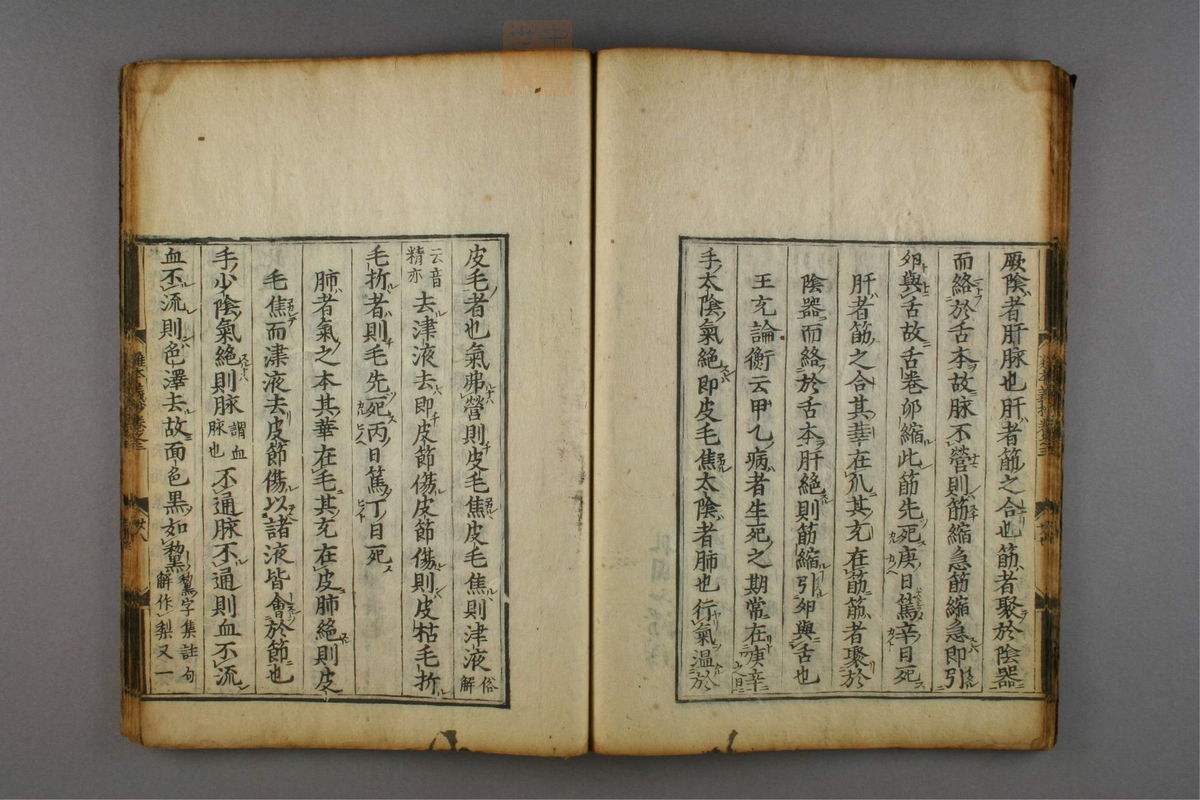 厥陰者肝脉也肝者筋之合也筋者聚於陰器
而絡於舌本故脉不營則筋縮急筋縮急即引
卵與舌故舌卷卵縮此筋先死庚日篤辛日死
肝者筋之合其華在爪其充在筋筋者聚於
陰器而絡於舌本肝絶則筋縮引卵與舌也
王充論衡云甲乙病者生死之期常在庚辛之日
手太陰氣絶即皮毛焦太陰者肺也行氣温於
皮毛者也氣弗營則皮毛焦皮毛焦則津液俗解
云音精亦去津液去即皮節傷皮節傷則皮枯毛折
毛折者則毛先死丙日篤丁日死
肺者氣之本其華在毛其充在皮肺絶則皮
毛焦而津液去皮節傷以諸液皆會於節也
手少陰氣絶則脉謂血脉也不通脉不通則血不流
血不流則色澤去故面色黒如黧黧字集註句解作梨又一